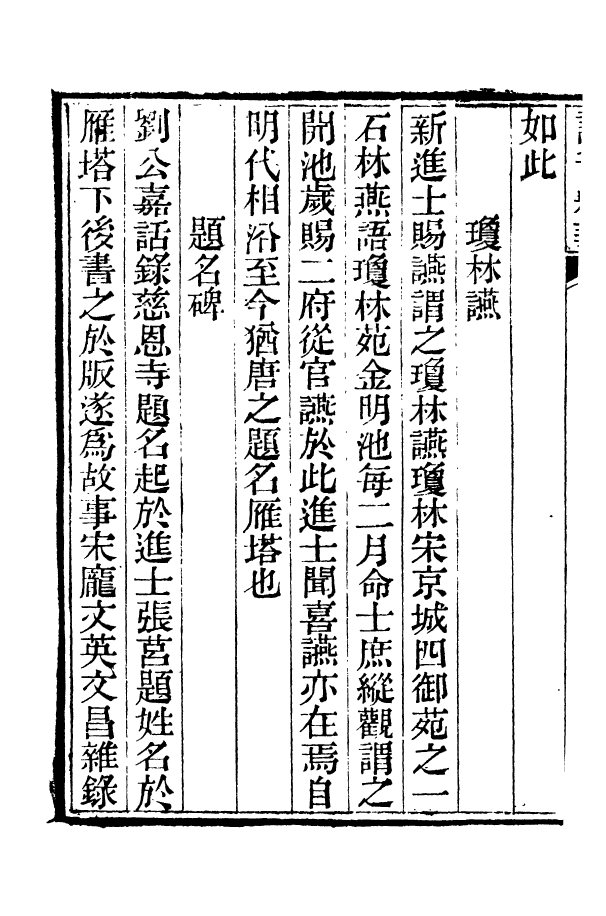 如此
瓊林讌
新進士賜讌謂之瓊林讌瓊林宋京城四御苑之一
石林燕語瓊林苑金明池每二月命士庶縱觀謂之
開池歲賜二府從官讌於此進士聞喜讌亦在焉自
明代相沿至今猶唐之題名雁塔也
題名碑
劉公嘉話錄慈恩寺題名起於進士張莒題姓名於
雁塔下後書之於版遂爲故事宋龐文英文昌雜錄